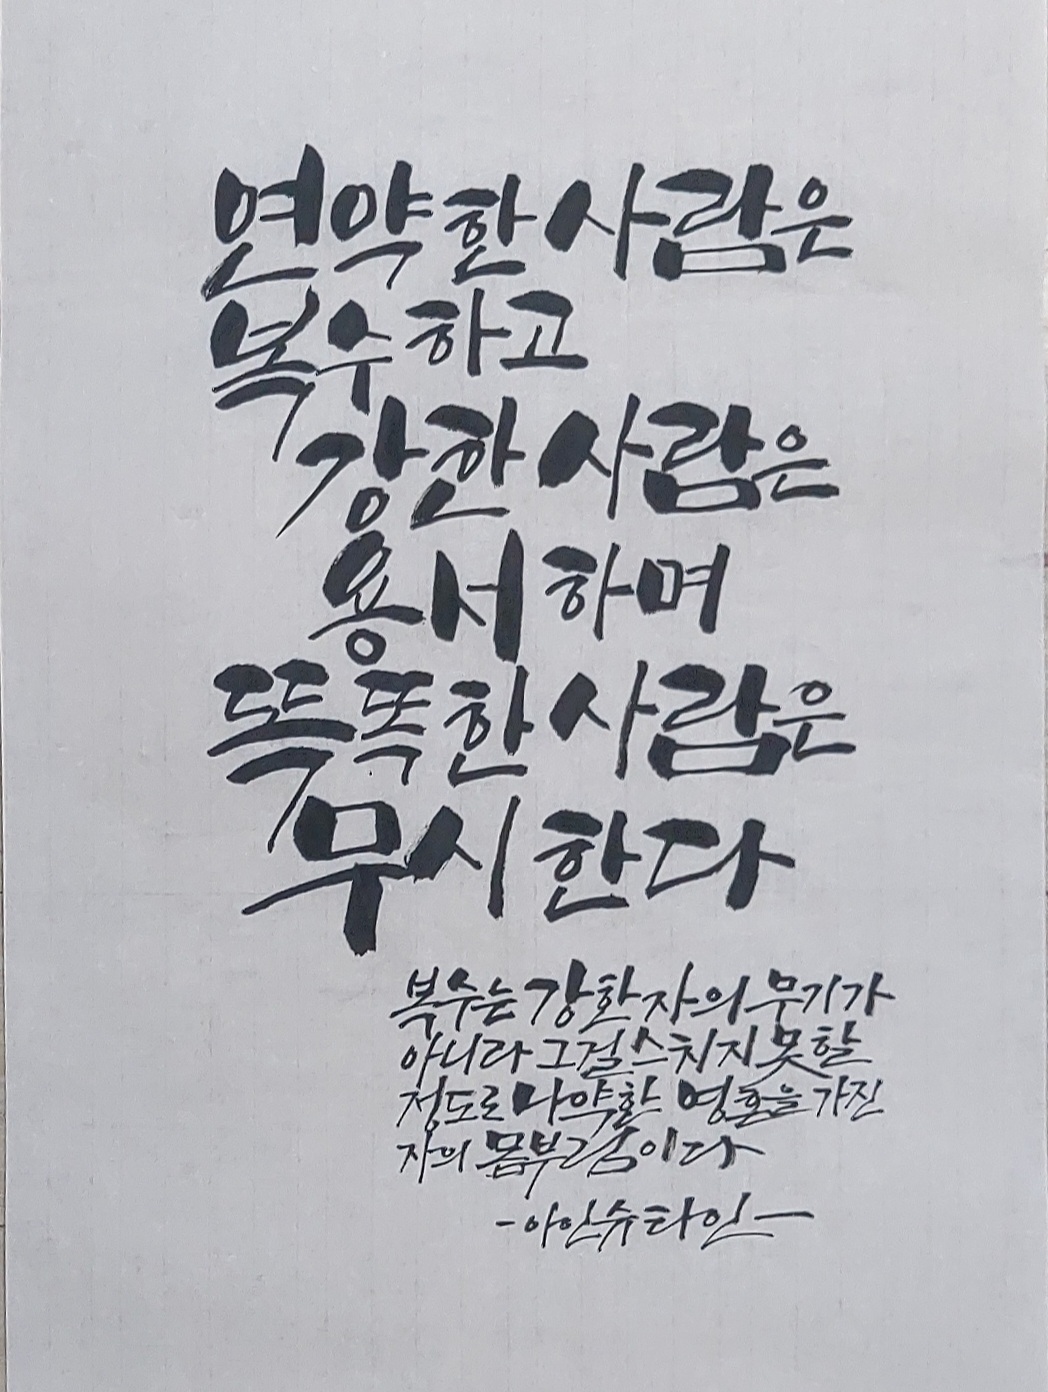 연약한 사람은
복수하고
강한 사람은
용서하며
똑똑한 사람은
무시한다
복수는 강한 자의 무기가
아니라 그걸 스치지 못할
정도로 나약한 영혼을 가진
자의 몸부림이다
-아인슈타인-